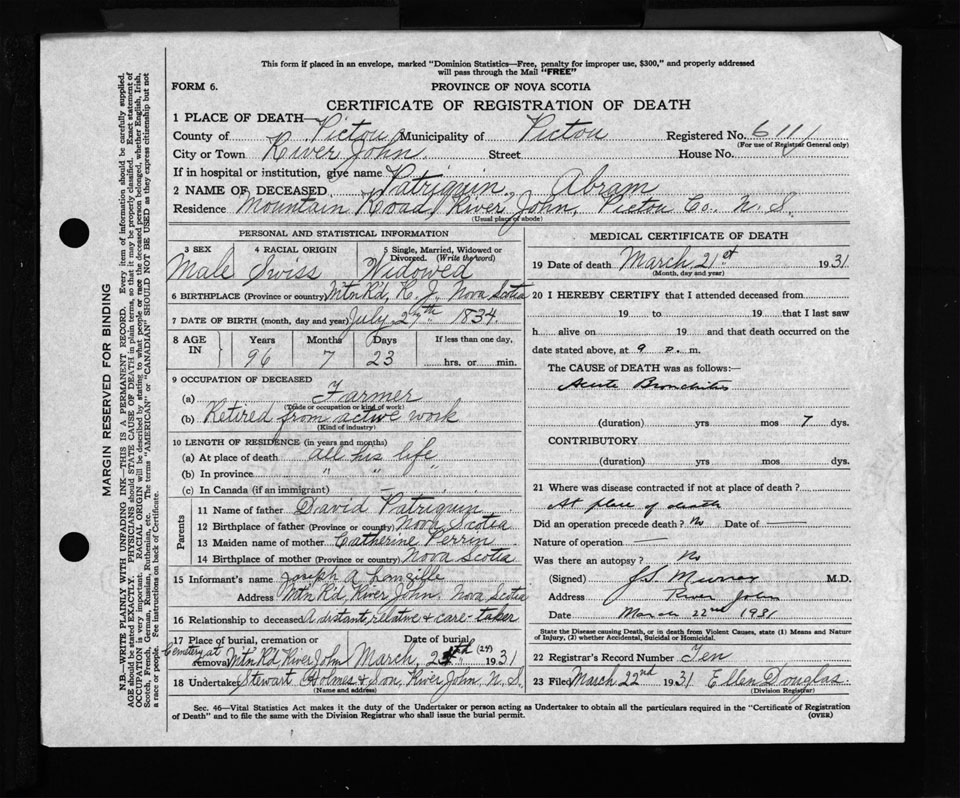 This form if placed in an envelope, marked "Dominion Statistics—Free, penalty for improper use, $300," and properly addressed
will pass through the Mail "FREE"
FORM 6.
PROVINCE OF NOVA SCOTIA
CERTIFICATE OF REGISTRATION OF DEATH
1 PLACE OF DEATH—
County of Pictou Municipality of Pictou Registered No. 611
(For use of Registrar General only)
City or Town River John. Street House No.
If in hospital or institution, give name
2 NAME OF DECEASED Patriquin, Abram
Residence Mountain Road, River John, Pictou Co., N. S.
(Usual place of abode)
PERSONAL AND STATISTICAL INFORMATION
3 SEX 4 RACIAL ORIGIN 5 Single, Married, Widowed or Divorced. (Write the word)
Male Swiss Widowed
6 BIRTHPLACE (Province or country) Mtn R'd, R. J., Nova Scotia
7 DATE OF BIRTH (month, day and year) July 27th 1834.
8 AGE IN Years Months Days If less than one day,
96 7 23 hrs. or min.
9 OCCUPATION OF DECEASED
(a) Farmer
(Trade or occupation or kind of work)
(b) Retired from active work
(Kind of industry)
10 LENGTH OF RESIDENCE (in years and months)
(a) At place of death all his life
(b) In province " " "
(c) In Canada (if an immigrant)
Parents
11 Name of father David Patriquin
12 Birthplace of father (Province or country) Nova Scotia
13 Maiden name of mother Catherine Perrin
14 Birthplace of mother (Province or Country) Nova Scotia
15 Informant's name Joseph A Langille
Address Mtn R'd, River John, Nova Scotia
16 Relationship to deceased A distant relative & care-taker
17 Place of burial, cremation or removal Cemetery at Mtn R'd River John
Date of burial March, (24) 1931
18 Undertaker Stewart Holmes & Son, River John, N. S.
(Name and address)
MEDICAL CERTIFICATE OF DEATH
19 Date of death March 21st 1931
(Month, day and year)
20 I HEREBY CERTIFY that I attended deceased from
19 to 19 that I last saw
h alive on 19 and that death occurred on
date stated above, at 9 p. m.
The CAUSE of DEATH was as follows:—
Acute Bronchitis
(duration) yrs mos 7 dys.
CONTRIBUTORY
(duration) yrs mos dys.
21 Where was disease contracted if not at place of death?
At place of death
Did an operation precede death? No Date of —
Nature of operation —
Was there an autopsy? No
(Signed) J.S. Murray M.D.
Address River John
Date March 22nd 1931
State the Disease causing Death, or in death from Violent Causes, state (1) Means and Nature of Injury, (2) whether Accidental, Suicidal or Homicidal.
22 Registrar's Record Number Ten
23 Filed March 22nd 1931 Ellen Douglas.
(Division Registrar)
Sec. 46—Vital Statistics Act makes it the duty of the Undertaker or person acting as Undertaker to obtain all the particulars required in the "Certificate of Registration
of Death" and to file the same with the Division Registrar who shall issue the burial permit.
(OVER)
MARGIN RESERVED FOR BINDING
N.B.—WRITE PLAINLY WITH UNFADING INK—THIS IS A PERMANENT RECORD. Every item of information should be carefully supplied.
AGE should be stated EXACTLY. PHYSICIANS should STATE CAUSE OF DEATH in plain terms, so that it may be properly classified. Exact statement of
OCCUPATION is very important. RACIAL ORIGIN will be described by stating to what people or race the deceased person belonged, whether English, Irish,
Scotch, French, German, Russian, Ruthenian, etc. The terms "AMERICAN" or "CANADIAN" SHOULD NOT BE USED as they express citizenship but not
a race or people. Fee instructions on back of Certificate.